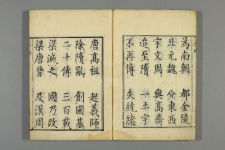 為南朝 都金陵
北元魏 分東西
宇文周 與高齊
迨至隋 一土宇
不再傳 失統緒
唐高祖 起義師
除隋亂 創國基
二十傳 三百載
梁滅之 國乃改
梁唐晉 及漢周